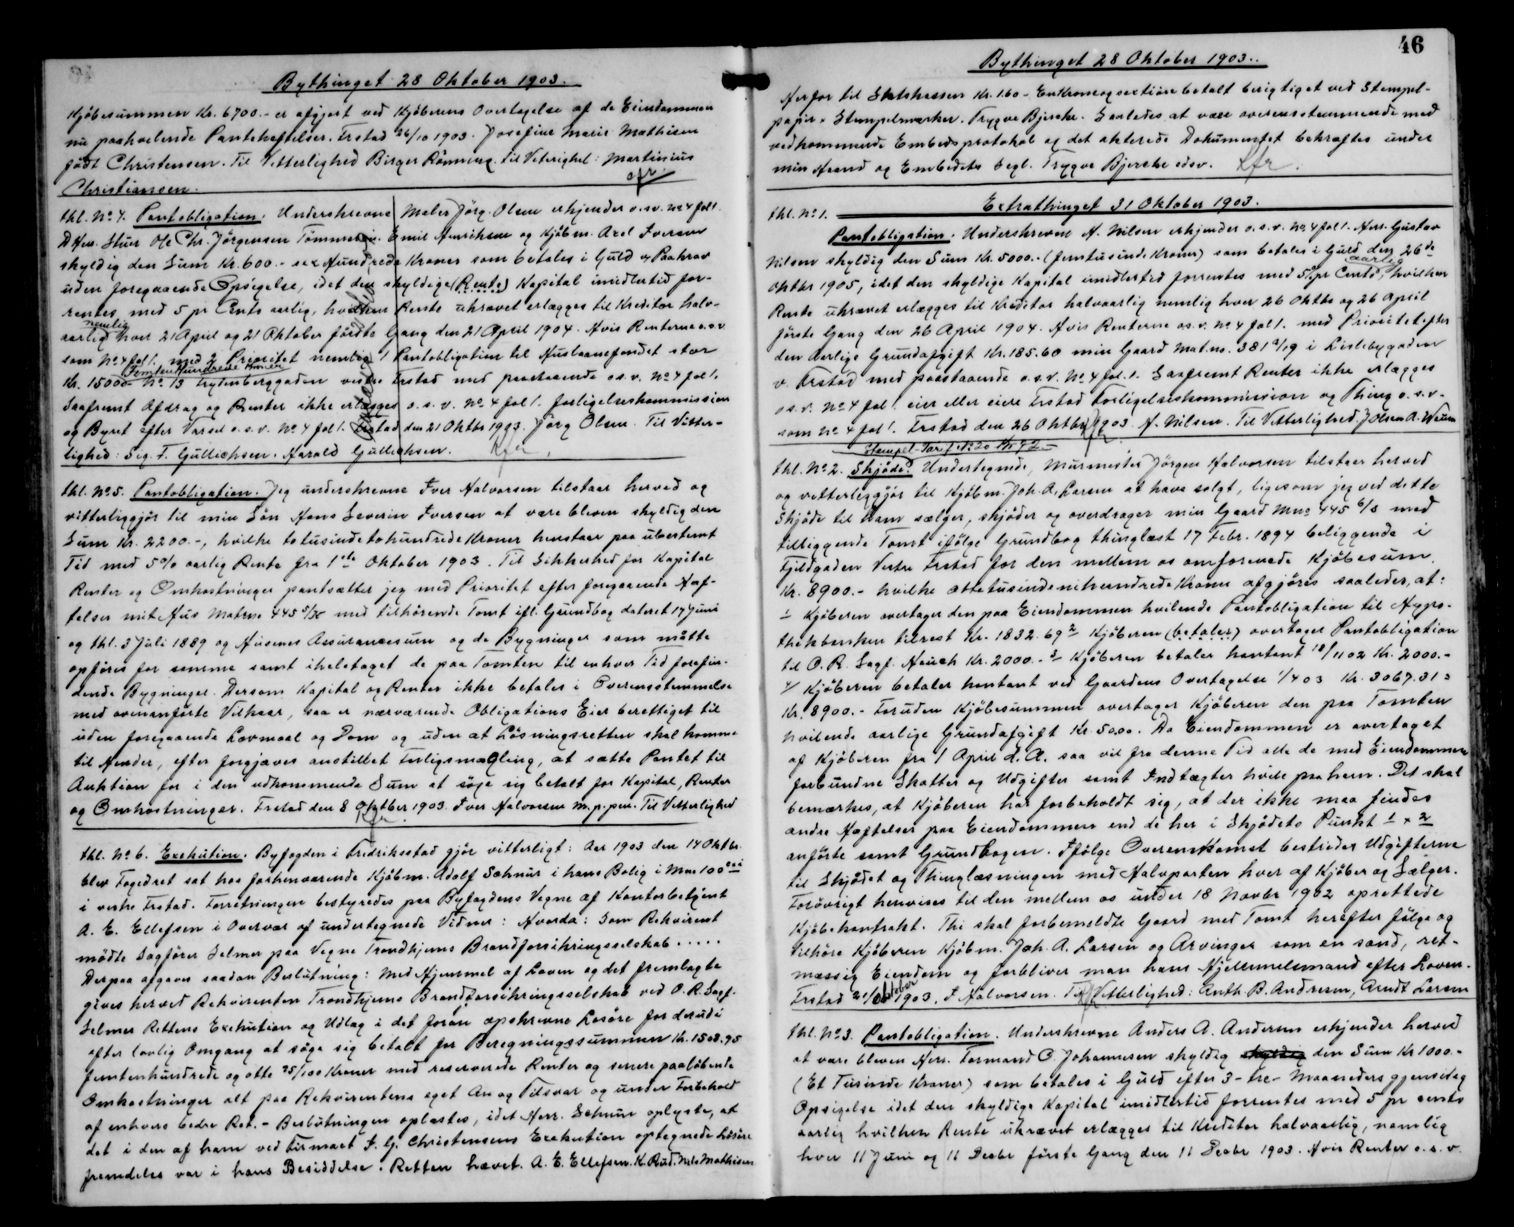 Bythinget 28 Oktober 1903.
Kjöbesummen Kr. 6700.- er afgjort ved Kjöberens Overtagelse af de Eiendommen
nu paahvilende Panteheftelser. Frstad 26/10 1903. Josefine Marie Mathisen
född Christensen. Til Vitterlighed Birger Rönning. Til Vitterighet: Martinius
Christiansen.
thl. No 4. Pantobligation. Underskrevne Maler Jörg. Olsen erkjender o.s.v. No 4 fol 1.
D'Hrr. Stur Ole Chr. Jörgensen Tömmerm. Emil Henriksen og Kjöbm. Axel Iversen
skyldig den Sum Kr. 600.- sex Hundrede Kroner som betales i Guld og Paakrav
uden foregaaende Opsigelse, idet den skyldige (Rente) Kapital imidlertid for-
rentes med 5 pr Cents aarlig, hvilken Rente ukrævet erlægges til Kreditor halv-
aarlig nemlig hver 21 April og 21 Oktober förste Gang den 21 April 1904. Hvis Renterne o.s.v.
som No 4 fol 1. med 2 Prioritet nemlig 1 Pantobligation til Huslaanefondet stor
Femten Hundrede Kroner
Kr. 1500.- No 13 Frydenberggaden vestre Frstad med paastaaende o.s.v. No 4 fol 1.
Saafremt Afdrag og Renter ikke erlægges o.s.v. No 4 fol 1. forligelseskommission
og Byret efter Varsel o.s.v. No 4 fol 1. Frstad den 21 Oktbr 1903. Jörg Olsen. Til Vitter-
lighed: Sig. F. Gullichsen. Harald Gullichsen. Kfr.
thl. No 5. Pantobligation. Jeg underskrevne Iver Halvorsen tilstaar herved og
vitterliggjör til min Sön Hans Severin Iversen at være bleven skyldig den
Sum Kr. 2200.-, hvilke totusindetohundrede Kroner henstaar paa ubestemt
Tid med 5% aarlig Rente fra 1ste Oktober 1903. Til Sikkerhed for Kapital
Renter og Omkostninger pantsætter jeg med Prioritet efter foregaaende Hæf-
telser mit Hus Matrno 445 med tilhörende Tomt ifl. Grundbog dateret 17 Juni
og thl. 3 Juli 1889 og Husenes Assurancesum og de Bygninger som maatte
opföres for samme samt iheletaget de paa Tomten til enhver Tid forefin-
dende Bygninger. Dersom Kapital og Renter ikke betales i Overensstemmelse
med ovenanförte Vilkaar, saa er nærværende Obligations Eier berettiget til
uden foregaaende Lovmaal og Dom og uden at Lösningsretten skal komme
til Hinder, efter forgjæves anstillet Forligsmægling, at sætte Pantet til
Auktion for i den udkommende Sum at söge sig betalt for Kapital, Renter
og Omkostninger. Frstad den 8 Oktber 1903. Iver Halvorsen m.p.pen. Til Vitterlighed
Kfr.
thl. No 6. Exekution. Byfogden i Fredriksstad gjör vitterligt: Aar 1903 den 14 Oktbr.
blev Fogedret sat hos forhenværende Kjöbm. Adolf Schnur i hans Bolig i Mno 100
i vestre Frstad. Forretningen bestyredes paa Byfogdens Vegne af Kontorbetjent
A. E. Ellefsen i Overvær af undertegnede Vidner: Hvorda: Som Rekvirent
mödte Sagförer Selmer paa Vegne Trondhjems Brandforsikringsselskab .....
Derpaa afgaves saadan Beslutning: Med Hjemmel af Loven og det fremlagte
gives herved Rekvirenten Trondhjems Brandforsikringsselskab ved O.R.Sagf.
Selmer Rettens Exekution og Udlæg i det foran opskrevne Lösöre for derudi
efter lovlig Omgang at söge sig betalt for Beregningssummen Kr. 1508.75
femtenhundrede og otte 75/100 Kroner med reserverede Renter og senere paalöbende
Omkostninger alt paa Rekvirentens eget An og Tilsvar og under Forbehold
af enhvers bedre Ret.- Beslutningen oplæstes, idet Herr. Schnur oplyste, at
det i den af ham ved Firmaet F. G. Christensens Exekution optegnede Lösöre
fremdeles var i hans Besiddelse. Retten hævet. A. E. Ellefsen. K. Rud. Nils Mathisen
46
Bythinget 28 Oktober 1903.
Herfor til Statskassen Kr. 1.60 - En Kroneogsextiöre betalt berigtiget ved Stempel-
papir × Stempelmærker. Trygve Bjerche. Saaledes at være overensstemmende med
vedkommende Embedsprotokol og det akterede Dokumentet bekræftes under
min Haand og Embedets Segl. Trygve Bjerche edsv. Kfr.
Extrathinget 31 Oktober 1903.
thl. No 1.
Pantobligation. Underskrevne A. Nilsen erkjender o.s.v. No 4 fol 1. Herr. Gustav
Nilsen skyldig den Sum Kr. 5000.- (femtusinde Kroner) som betales i Guld den 26de
Oktbr 1905, idet den skyldige Kapital imidlertid forrentes med 5 pr Cents, aarlig hvilken
Rente ukrævet erlægges til Kreditor halvaarlig nemlig hver 26 Oktbr og 26 April
förste Gang den 26 April 1904. Hvis Renterne o.s.v. No 4 fol 1. med Prioritet efter
den aarlige Grundafgift Kr. 185.60 min Gaard Mat.no. 381 i Lislebygaden
v. Frstad med paastaaende o.s.v. No 4 fol. 1. Saafremt Renter ikke erlægges
o.s.v. No 4 fol 1 eier eller eiere Frstad Forligelseskommission og Thing o.s.v.
som No 4 fol 1. Frstad den 26 Oktbr 1903. A. Nilsen. Til Vitterlighed J. Olsen A. Wiium
Kfr.
thl. No 2. Skjöde. Undertegnede, Murmester Jörgen Halvorsen tilstaar herved
og vitterliggjör til Kjöbm. Joh. A. Larsen at have solgt, ligesom jeg ved dette
Skjöde til ham sælger, skjöder og overdrager min Gaard Mno 445 med
tilliggende Tomt ifölge Grundbog thinglæst 17 Febr. 1894 beliggende i
Fjeldgaden Vestre Frstad for den mellem os omforenede Kjöbesum.
Kr. 8900.- hvilke ottetusindenihundrede Kroner afgjöres saaledes, at:
1 Kjöberen overtager den paa Eiendommen hvilende Pantobligation til Hypo-
thekbanken tilrest Kr. 1832.69 2 Kjöberen (betaler) overtager Pantobligation
til O.R.Sagf. Hauch Kr. 2000.- 3 Kjöberen betaler kontant 18/11 02 Kr. 2000.-
4/ Kjöberen betaler kontant ved Gaardens Overtagelse 1/4 03 Kr. 3067.31 =
Kr. 8900.- Foruden Kjöbesummen overtager Kjöberen den paa Tomten
hvilende aarlige Grundafgift Kr 50.00. Da Eiendommen er overtaget
af Kjöberen fra 1 April d. A. saa vil fra denne Tid alle de med Eiendommen
forbundne Skatter og Udgifter samt Indtægter hvile paa ham. Det skal
bemærkes, at Kjöberen har forbeholdt sig, at der ikke maa findes
andre Hæftelser paa Eiendommen end de her i Skjödets Punkt 1 × 2
anförte samt Grundbogen. Ifölge Overenskomst bestrides Udgifterne
til Skjödet og Thinglæsningen med Halvparten hver af Kjöber og Sælger.
Forövrigt henvises til den mellem os under 18 Novbr 1902 oprettede
Kjöbekontrakt. Thi skal forbemeldte Gaard med Tomt herefter fölge og
tilhöre Kjöberen Kjöbm. Joh. A. Larsen og Arvinger som en sand, ret-
mæssig Eiendom og forbliver man hans Hjemmelsmand efter Loven.
Frstad 21/Oktober 1903. J. Halvorsen. Til Vitterlighed: Anth. B. Andresen, Arndt Larsen
thl. No 3. Pantobligation. Underskrevne Anders A. Andersen erkjender herved
at være bleven Herr. Formand C. Johannesen skyldig skyldig den Sum Kr 1000.-
(Et Tusinde Kroner) som betales i Guld efter 3 - tre - Maaneders gjensidig
Opsigelse idet den skyldige Kapital imidlertid forrentes med 5 pr cents
aarlig hvilken Rente ukrævet erlægges til Kreditor halvaarlig, nemlig
hver 11 Juni og 11 Decbr förste Gang den 11 Decbr 1903. Hvis Renter o.s.v.